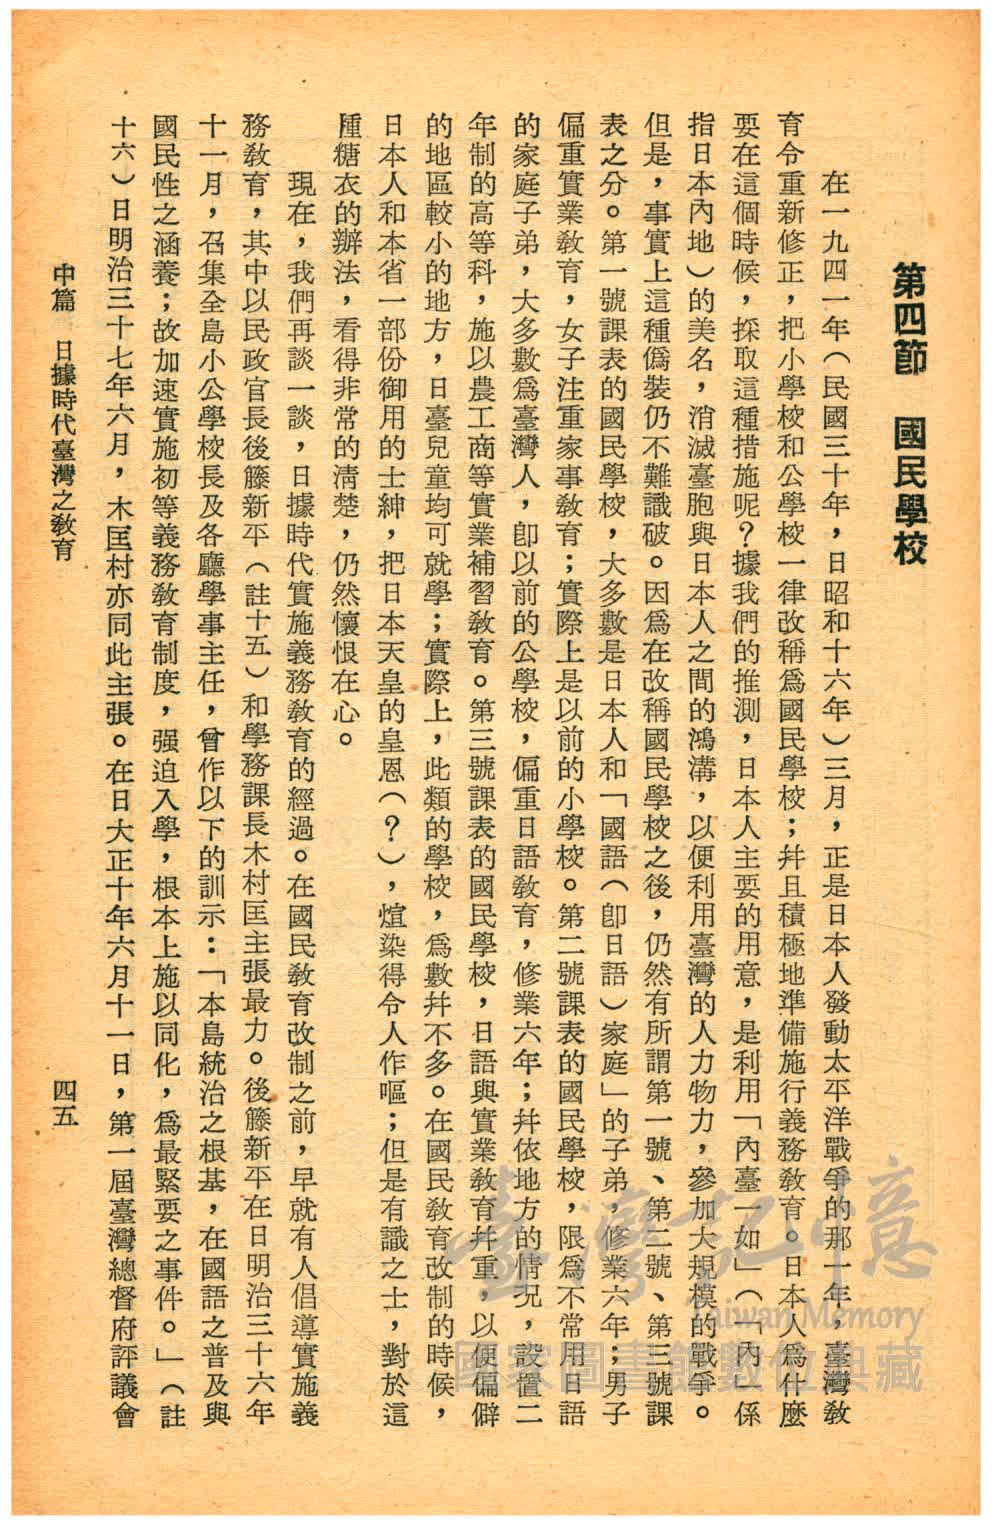 第四節　國民學校
在一九四一年（民國三十年，日昭和十六年）三月，正是日本人發動太平洋戰爭的那一年，臺灣教
育令重新修正，把小學校和公學校一律改稱爲國民學校；幷且積極地準備施行義務教育。日本人爲什麼
要在這個時候，採取這種措施呢？據我們的推測，日本人主要的用意，是利用「內臺一如」（「內」係
指日本內地）的美名，消滅臺胞與日本人之間的鴻溝，以便利用臺灣的人力物力，參加大規模的戰爭。
但是，事實上這種僞裝仍不難識破。因爲在改稱國民學校之後，仍然有所謂第一號、第二號、第三號課
表之分。第一號課表的國民學校，大多數是日本人和「國語（卽日語）家庭」的子弟，修業六年；男子
偏重實業教育，女子注重家事教育；實際上是以前的小學校。第二號課表的國民學校，限爲不常用日語
的家庭子弟，大多數爲臺灣人，卽以前的公學校，偏重日語教育，修業六年；幷依地方的情況，設置二
年制的高等科，施以農工商等實業補習教育。第三號課表的國民學校，日語與實業教育幷重，以便偏僻
的地區較小的地方，日臺兒童均可就學；實際上，此類的學校，爲數幷不多。在國民教育改制的時候，
日本人和本省一部份御用的士紳，把日本天皇的皇恩（？），煊染得令人作嘔；但是有識之士，對於這
種糖衣的辦法，看得非常的清楚，仍然懷恨在心。
現在，我們再談一談，日據時代實施義務教育的經過。在國民教育改制之前，早就有人倡導實施義
務教育，其中以民政官長後籐新平（註十五）和學務課長木村匡主張最力。後籐新平在日明治三十六年
十一月，召集全島小公學校長及各廳學事主任，曾作以下的訓示：「本島統治之根基，在國語之普及與
國民性之涵養；故加速實施初等義務教育制度，强迫入學，根本上施以同化，爲最緊要之事件。」（註
十六）日明治三十七年六月，木匡村亦同此主張。在日大正十年六月十一日，第一屆臺灣總督府評議會
中篇　日據時代臺灣之教育　四五
臺灣記憶
Taiwan Memory
國家圖書館數位典藏